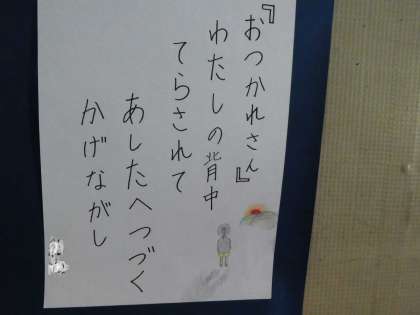 『おつかれさん』
わたしの背中
てらされて
あしたへつづく
かげながし